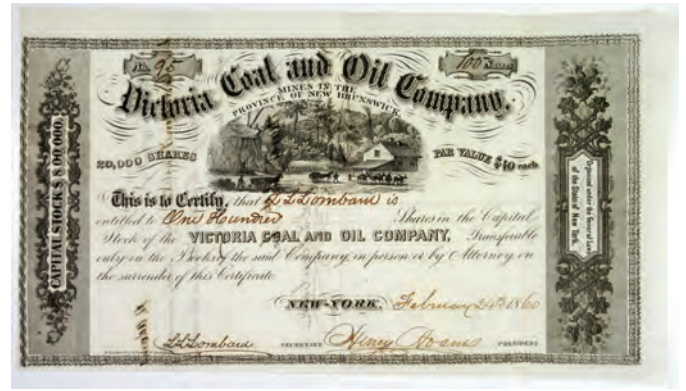 No. 95
100 Shares
Victoria Coal and Oil Company.
MINES IN THE
PROVINCE OF NEW BRUNSWICK.
20,000 SHARES
PAR VALUE $40 each
CAPITAL STOCK $ 8.00.000.
Organized under the General Laws
of the State of New York.
This is to Certify, that L L Lombard is
entitled to One Hundred Shares in the Capital
Stock of the VICTORIA COAL AND OIL COMPANY, Transferable
only on the Books of the said Company, in person or by Attorney on
the surrender of this Certificate.
NEW-YORK, February 24th 1860
L L Lombard SECRETARY Henry PRESIDENT